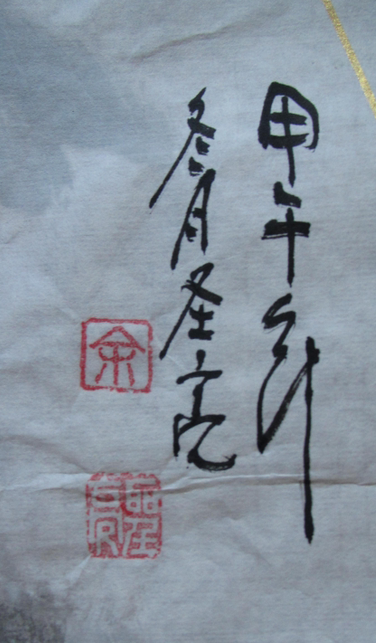 甲午年
冬月圣亮
余
聖亮